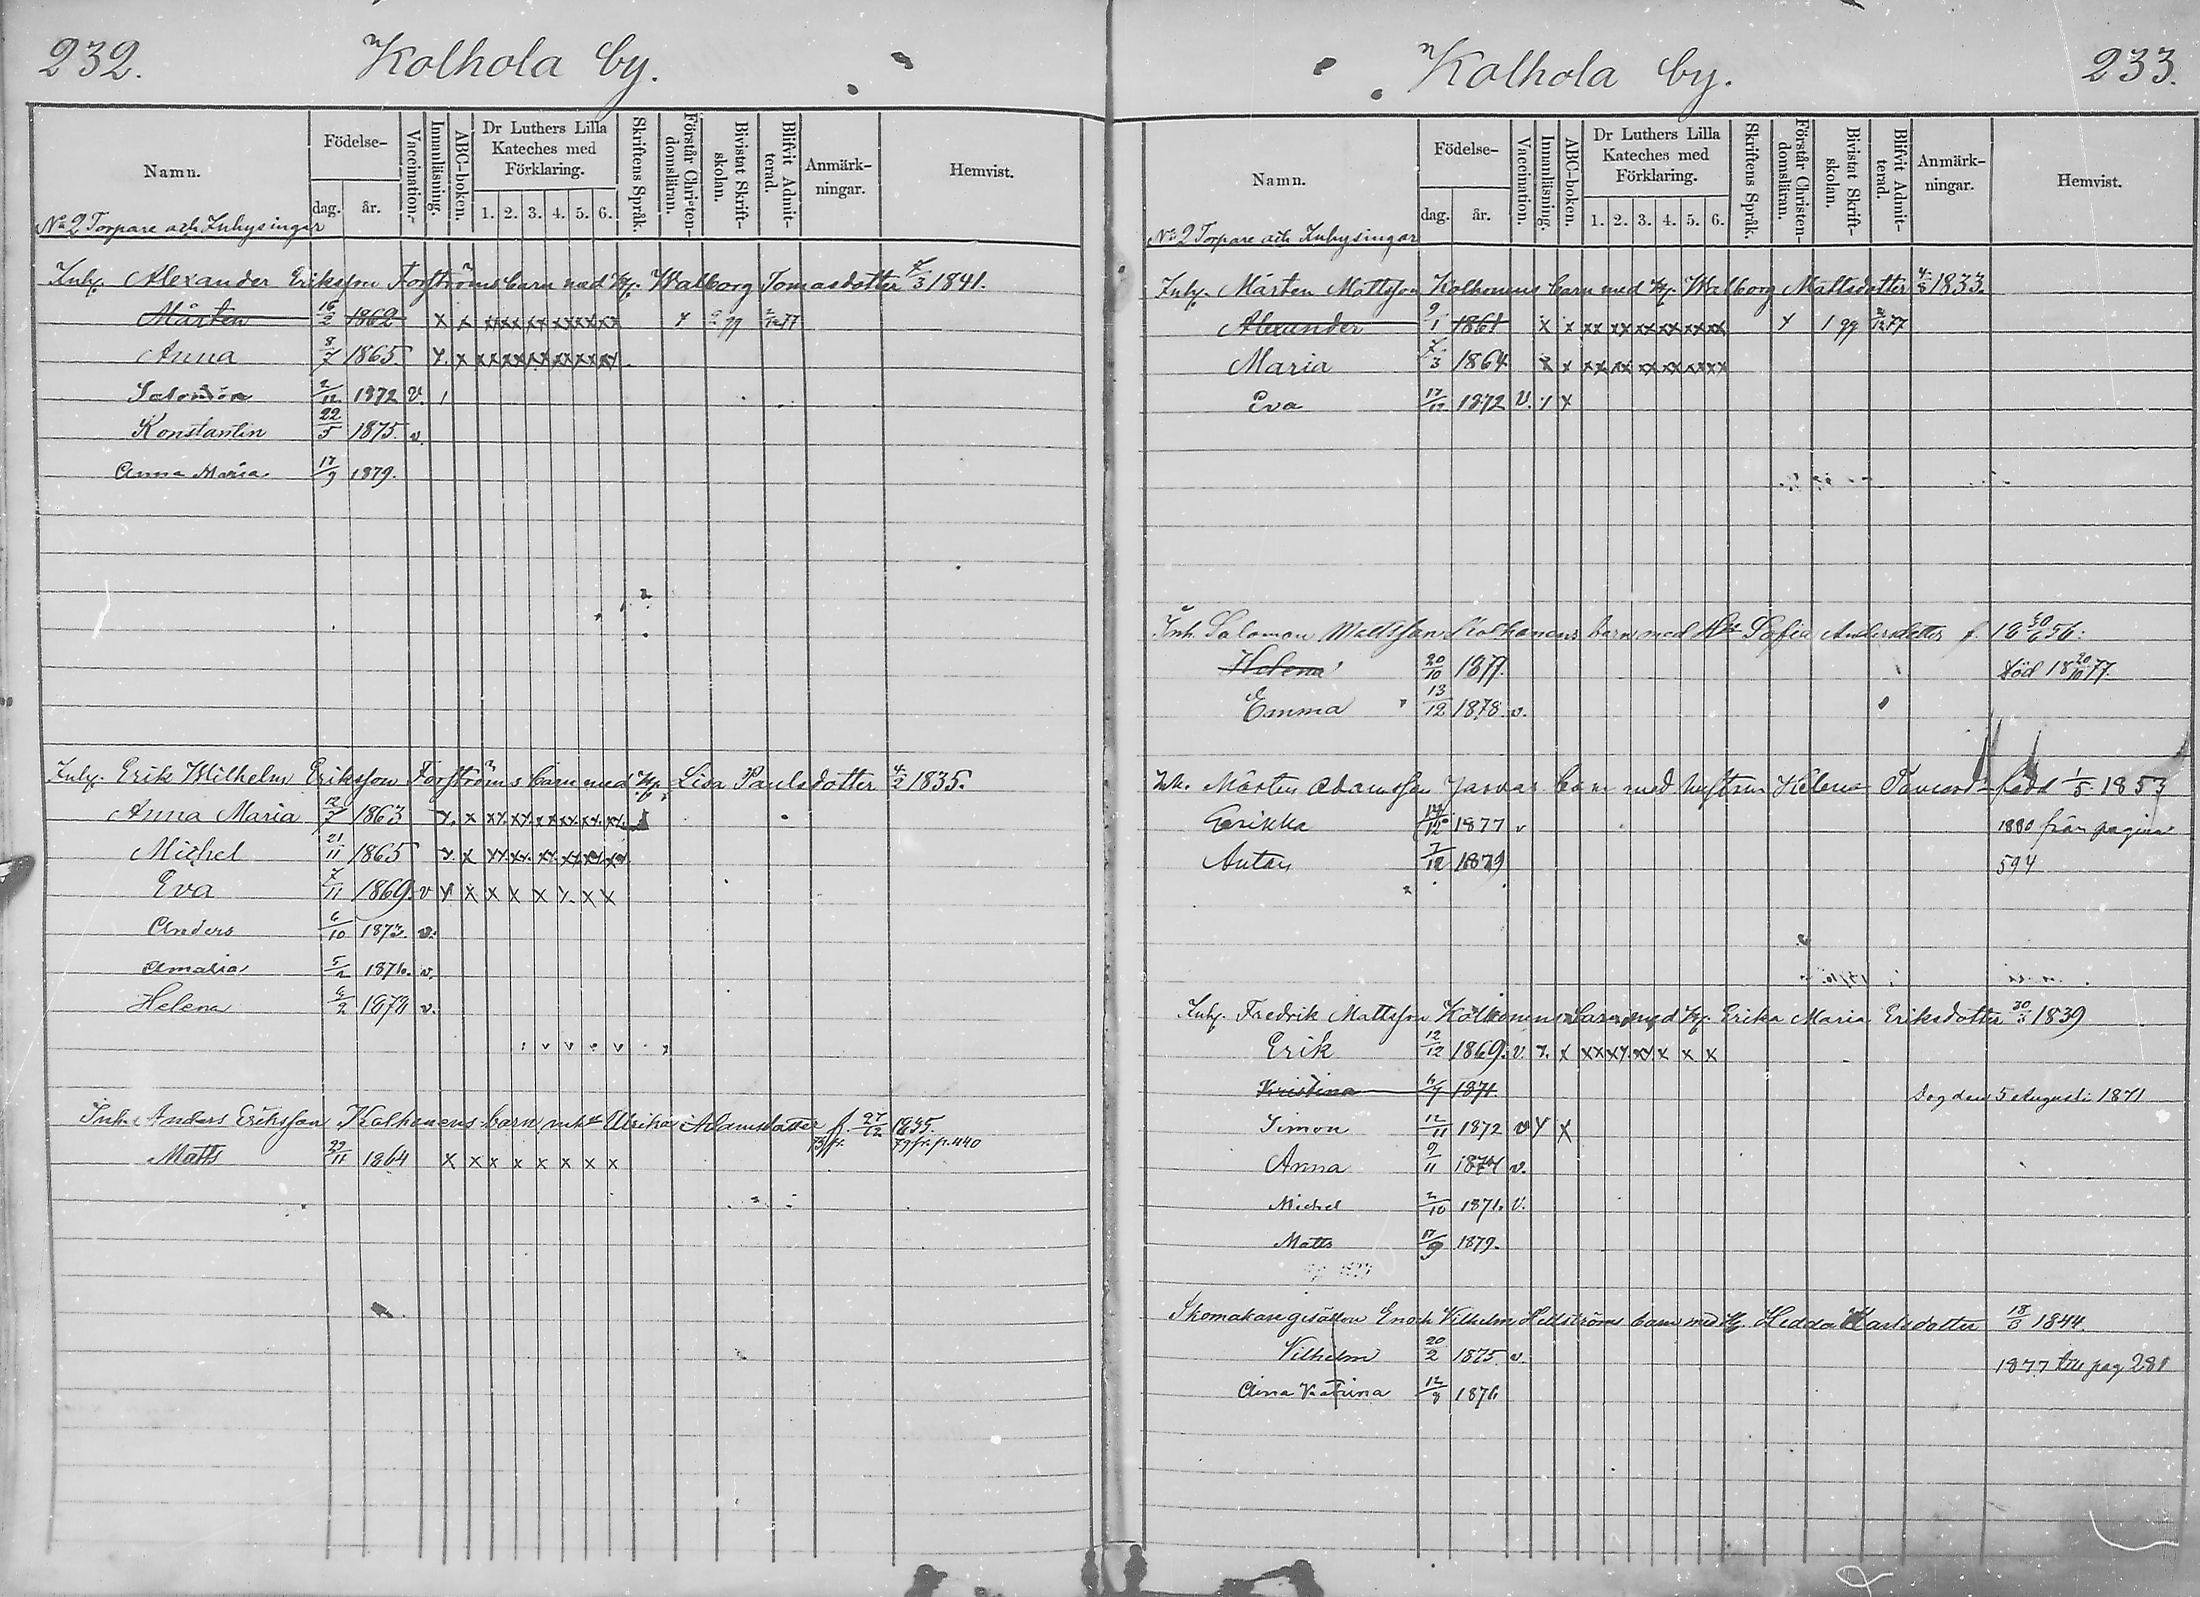 232.
Kolhola by.
Namn.
Födelse-
dag.
år.
Vaccination.
Innanläsning.
ABC-boken.
Dr Luthers Lilla Kateches med Förklaring.
1. 2. 3. 4. 5. 6.
Skriftens Språk.
Förstår Christendomsläran.
Bivistat Skriftskolan.
Blifvit Admitterad.
Anmärkningar.
Hemvist.
No 2 Torpare och Inhysingar
Inhs. Alexander Eriksson Forströms barn med H. Walborg Tomasdotter 7/3 1841.
Mårten 16/2 1862 x x xx xx xx xx xx xx x 2/12 77
Anna 8/7 1865 x. x xx xx xx xx xx xx
Salomon 2/12 1872 v. 1
Konstantin 22/5 1875. v.
Anna Maria 17/9 1879.
Inhs. Erik Wilhelm Eriksson Forströms barn med H. Lisa Paulsdotter 4/2 1835.
Anna Maria 12/7 1863 x. x xx. xx. xx xx. xx. xx.
Michel 21/11 1865 x. x xx. xx. xx. xx xx xx
Eva 7/11 1869. v x x x x x x x x
Anders 6/10 1873. v.
Amalia 5/2 1876. v.
Helena 6/2 1878 v.
Inh. Anders Eriksson Kolhonens barn m. H. Ulrika Adamsdotter f. 27/12 1835.
79 fr. p. 440
Matts 23/11 1864 x x x x x x x x
233.
Kolhola by.
Namn.
Födelse-
dag.
år.
Vaccination.
Innanläsning.
ABC-boken.
Dr Luthers Lilla Kateches med Förklaring.
1. 2. 3. 4. 5. 6.
Skriftens Språk.
Förstår Christendomsläran.
Bivistat Skriftskolan.
Blifvit Admitterad.
Anmärkningar.
Hemvist.
No 2 Torpare och Inhysingar
Inhs. Mårten Mattsson Kolhonens barn med H. Walborg Mattsdotter 1833.
Alexander 9/1 1861 x x xx xx xx xx xx xx x 1 gg 2/12 77
Maria 7/3 1864 x x xx xx xx xx xx xx
Eva 17/12 1872 v. x x
Inh. Salomon Mattsson Kolhonens barn med H. Sofia Andersdotter f. 18 30/6 56.
Helena 20/10 1877. död 18 20/10 77.
Emma 13/12 1878 v.
Mårten Adamsson Jarvas barn med hustrun Helena född 1/5 1853
Erikka 1877 v 1880 från pagina
Antas 7/12 1879 594
Inhs. Fredrik Mattsson Kolhonens barn med H. Erika Maria Eriksdotter 30/3 1839
Erik 12/12 1869. v. x. x xx xx. xx x x x
Kristina 6/7 1871. dog den 5 Augusti 1871
Simon 12/11 1872 v x x
Anna 9/11 1874 v.
Michel 2/10 1876. v.
Matts 17/9 1879.
Skomakaregesällen Enoch Vilhelm Hellströms barn med H. Hedda Karlsdotter 1844.
Vilhelm 20/2 1875 v. 1877 till pag 281
Aina Katrina 12/8 1876